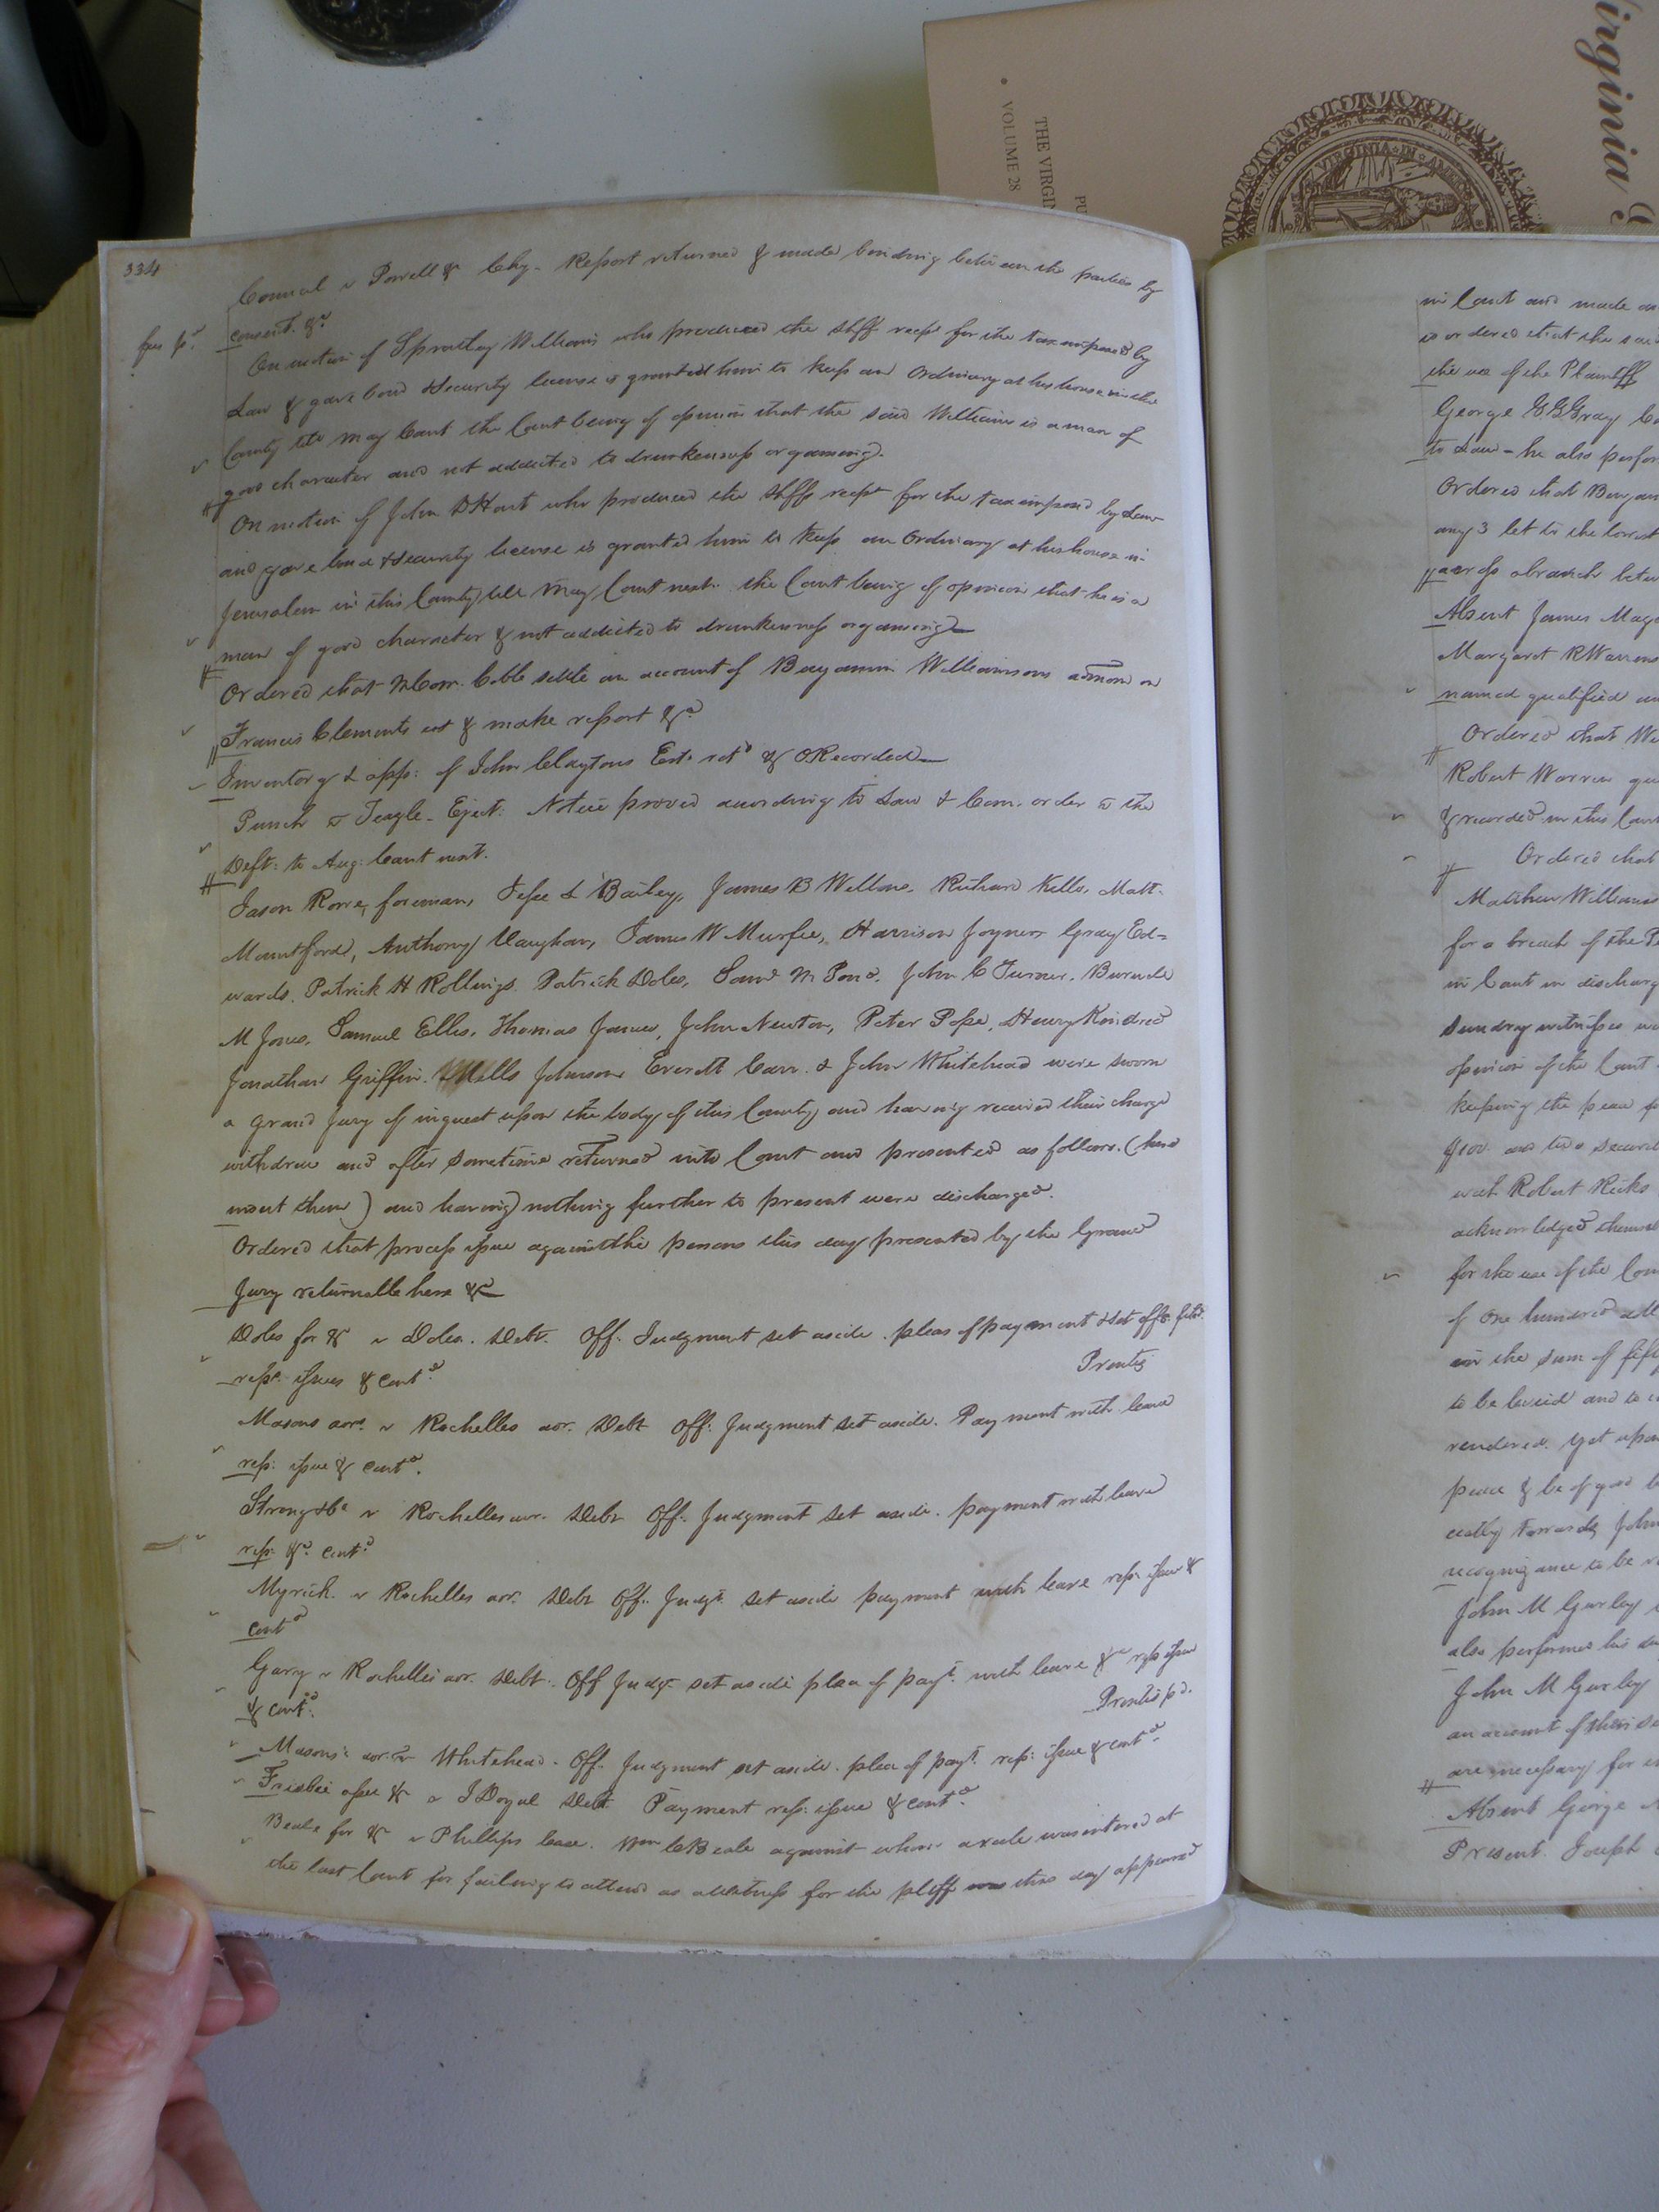 Virginia
THE VIRGI
VOLUME 28
PU
VIRGINIA IN
334
Council v Powell &c Chy. Report returned & made binding between the parties by
fees pd.
consent. &c
On motion of Spratley Williams who produced the Shff recpt for the tax imposed by
Law & gave bond & security license is granted him to keep an Ordinary at his house in the
County till May Court the Court being of opinion that the said Williams is a man of
good character and not addicted to drunkenness or gaming.
On motion of John D Hart who produced the Shffs recpt for the tax imposed by Law
and gave bond & security license is granted him to keep an Ordinary at his house in
Jerusalem in this County till May Court next. the Court being of opinion that he is a
man of good character & not addicted to drunkenness or gaming
Ordered that Cobb settle an account of Benjamin Williamsons admon on
Francis Clements est & make report &c
Inventory & app: of John Claytons Est. retd & ORecorded
Punch v Teagle - Eject. Notice proved according to Law & Com. order v the
Deft: to Aug: Court next.
Jason Rowe, foreman, Jesse L Bailey, James B Wellons, Richard Kello, Matt.
Mountford, Anthony Vaughan, James W Murfee, Harrison Joyner Gray Ed=
wards. Patrick H Rollings. Patrick Doles, Saml M Pond. John C Turner. Burwell
M Jones, Samuel Ellis, Thomas James, John Newton, Peter Pope, Henry Kindred
Jonathan Griffin. Mills Johnson Everett Carr. & John Whitehead were sworn
a grand Jury of inquest upon the body of this County and having received their charge
withdrew and after sometime returned into Court and presented as follows. (here
insert them) and having nothing further to present were discharged.
Ordered that process issue against the persons this day presented by the Grand
Jury returnable here &c
Doles for &c v Doles. Debt. Off. Judgment set aside. pleas of payment & set offs filed.
repn. issues & contd.
Prentis
Masons aor. v Rochelles aor. Debt Off. Judgment set aside. Payment with leave
rep: issue & contd.
Strong & Co v Rochelles aor. Debt Off. Judgment set aside. payment with leave
rep: &c. contd.
Myrick v Rochelles aor. Debt Off. Judgt. set aside payment with leave rep: issue &
contd
Gary v Rochelles aor. Debt. Off Judgt set aside plea of payt. with leave &c rep issue
& contd.
Prentis pd.
Masons aor. v Whitehead. Off. Judgment set aside. plea of payt. rep: issue & contd.
Frisbie assee &c v J Doyal Debt Payment rep: issue & contd.
Beale for &c v Phillips Case. Wm C Beale against whom a rule was entered at
the last Court for failing to attend as a witness for the pltff was this day appeared
in Court and made
is ordered that the said
the use of the Plaintff
George Gray
to Law - he also perfor
Ordered that Benjam
any 3 let to the lowest
across a branch betw
Absent James Mag
Margaret R Warrens
named qualified
Ordered that
Robert Warren
& recorded in this Court
Ordered that
Matthew Williams
for a breach of the P
in Court in discharg
Sundry witnesses
opinion of the Court
keeping the peace
$100. and two securi
with Robert Ricks
acknowledged themsel
for the use of the Com
of One hundred doll
in the sum of fift
to be levied and to
rendered. Yet upon
peace & be of good
cially towards John
recognizance to be
John M Gurley
also performed his
John M Gurley
an account of their
are necessary for
Absent George
Present Joseph